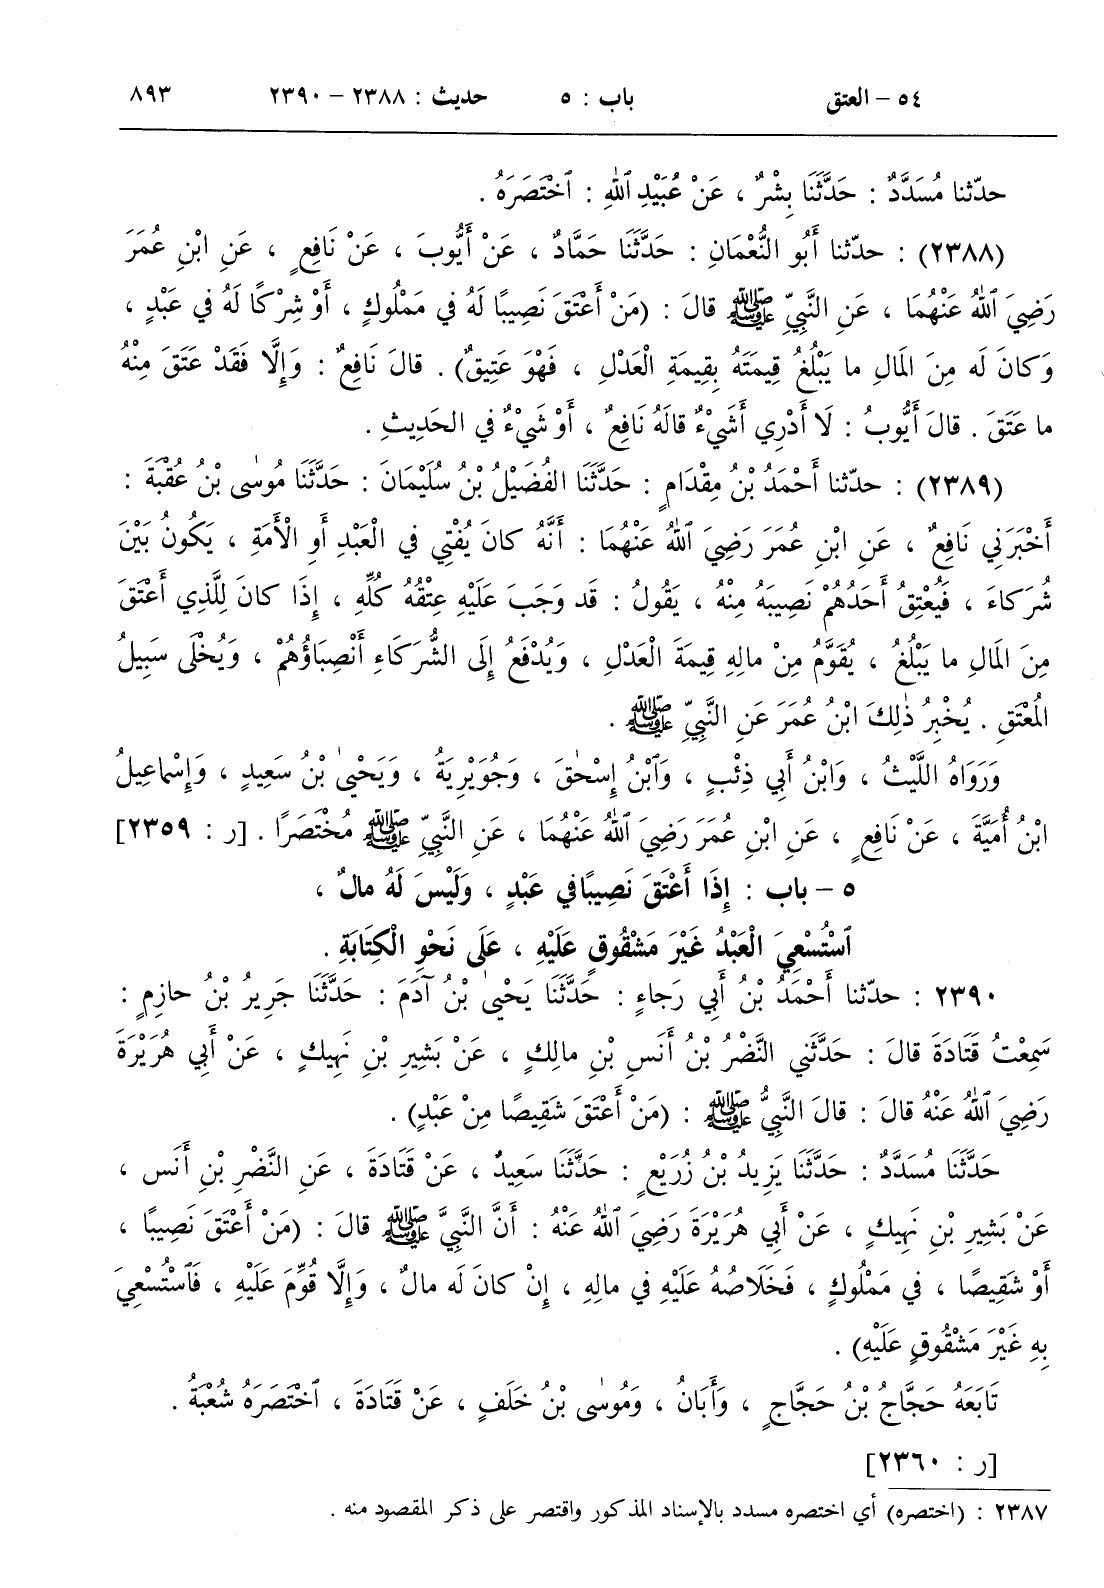 ٥٤ – العتق باب : ٥ حديث : ٢٣٨٨ – ٢٣٩٠ ٨٩٣
حدّثنا مُسَدَّدٌ : حَدَّثَنَا بِشْرٌ ، عَنْ عُبَيْدِ ٱللهِ : ٱخْتَصَرَهُ .
(٢٣٨٨) : حدّثنا أَبُو النُّعْمَانِ : حَدَّثَنَا حَمَّادٌ ، عَنْ أَيُّوبَ ، عَنْ نَافِعٍ ، عَنِ ابْنِ عُمَرَ
رَضِيَ ٱللهُ عَنْهُمَا ، عَنِ النَّبِيِّ ﷺ قالَ : (مَنْ أَعْتَقَ نَصِيبًا لَهُ في مَمْلُوكٍ ، أَوْ شِرْكًا لَهُ في عَبْدٍ ،
وَكانَ لَه مِنَ المَالِ ما يَبْلُغُ قِيمَتَهُ بِقِيمَةِ الْعَدْلِ ، فَهْوَ عَتِيقٌ) . قالَ نَافِعٌ : وَإِلَّا فَقَدْ عَتَقَ مِنْهُ
ما عَتَقَ . قالَ أَيُّوبُ : لَا أَدْرِي أَشَيْءٌ قالَهُ نَافِعٌ ، أَوْ شَيْءٌ في الحَدِيثِ .
(٢٣٨٩) : حدّثنا أَحْمَدُ بْنُ مِقْدَامٍ : حَدَّثَنَا الفُضَيْلُ بْنُ سُلَيْمَانَ : حَدَّثَنَا مُوسٰى بْنُ عُقْبَةَ :
أَخْبَرَنِي نَافِعٌ ، عَنِ ابْنِ عُمَرَ رَضِيَ ٱللهُ عَنْهُمَا : أَنَّهُ كانَ يُفْتِي في الْعَبْدِ أَوِ الْأَمَةِ ، يَكُونُ بَيْنَ
شُرَكاءَ ، فَيُعْتِقُ أَحَدُهُمْ نَصِيبَهُ مِنْهُ ، يَقُولُ : قَد وَجَبَ عَلَيْهِ عِتْقُهُ كُلِّهِ ، إِذَا كانَ لِلَّذِي أَعْتَقَ
مِنَ المَالِ ما يَبْلُغُ ، يُقَوَّمُ مِنْ مالِهِ قِيمَةَ الْعَدْلِ ، وَيُدْفَعُ إِلَى الشُّرَكَاءِ أَنْصِبَاؤُهُمْ ، وَيُخْلَى سَبِيلُ
المُعْتَقِ . يُخْبِرُ ذٰلِكَ ابْنُ عُمَرَ عَنِ النَّبِيِّ ﷺ .
وَرَوَاهُ اللَّيْثُ ، وَابْنُ أَبِي ذِئْبٍ ، وَٱبْنُ إِسْحٰقَ ، وَجُوَيْرِيَةُ ، وَيَحْيىٰ بْنُ سَعِيدٍ ، وَإِسْماعِيلُ
ابْنُ أُمَيَّةَ ، عَنْ نَافِعٍ ، عَنِ ابْنِ عُمَرَ رَضِيَ ٱللهُ عَنْهُمَا ، عَنِ النَّبِيِّ ﷺ مُخْتَصَرًا . [ر : ٢٣٥٩]
٥ – باب : إِذَا أَعْتَقَ نَصِيبًا في عَبْدٍ ، وَلَيْسَ لَهُ مالٌ ،
ٱسْتُسْعِيَ الْعَبْدُ غَيْرَ مَشْقُوقٍ عَلَيْهِ ، عَلَى نَحْوِ الْكِتَابَةِ .
٢٣٩٠ : حدّثنا أَحْمَدُ بْنُ أَبِي رَجاءٍ : حَدَّثَنَا يَحْيىٰ بْنُ آدَمَ : حَدَّثَنَا جَرِيرُ بْنُ حازِمٍ :
سَمِعْتُ قَتَادَةَ قالَ : حَدَّثَنِي النَّضْرُ بْنُ أَنَسِ بْنِ مالِكٍ ، عَنْ بَشِيرِ بْنِ نَهِيكٍ ، عَنْ أَبِي هُرَيْرَةَ
رَضِيَ ٱللهُ عَنْهُ قالَ : قالَ النَّبِيُّ ﷺ : (مَنْ أَعْتَقَ شَقِيصًا مِنْ عَبْدٍ) .
حَدَّثَنَا مُسَدَّدٌ : حَدَّثَنَا يَزِيدُ بْنُ زُرَيْعٍ : حَدَّثَنَا سَعِيدٌ ، عَنْ قَتَادَةَ ، عَنِ النَّضْرِ بْنِ أَنَس ،
عَنْ بَشِيرِ بْنِ نَهِيكٍ ، عَنْ أَبِي هُرَيْرَةَ رَضِيَ ٱللهُ عَنْهُ : أَنَّ النَّبِيَّ ﷺ قالَ : (مَنْ أَعْتَقَ نَصِيبًا ،
أَوْ شَقِيصًا ، في مَمْلُوكٍ ، فَخَلَاصُهُ عَلَيْهِ في مالِهِ ، إِنْ كانَ لَه مالٌ ، وَإِلَّا قُوِّمَ عَلَيْهِ ، فَٱسْتُسْعِيَ
بِهِ غَيْرَ مَشْقُوقٍ عَلَيْهِ) .
تَابَعَهُ حَجَّاجُ بْنُ حَجَّاجٍ ، وَأَبَانُ ، وَمُوسٰى بْنُ خَلَفٍ ، عَنْ قَتَادَةَ ، ٱخْتَصَرَهُ شُعْبَةُ .
[ر : ٢٣٦٠]
٢٣٨٧ : (اختصره) أي اختصره مسدد بالإسناد المذكور واقتصر على ذكر المقصود منه .